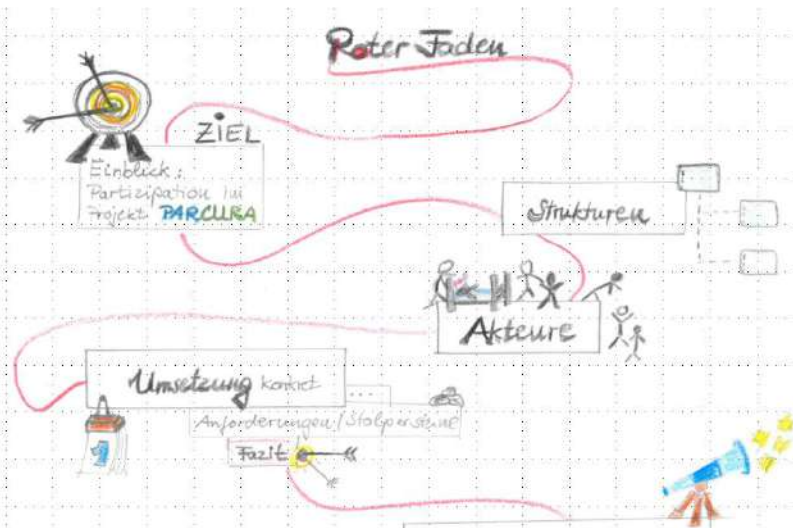 Roter Faden
ZIEL
Einblick:
Partizipation im
Projekt PARCURA
Strukturen
Akteure
Umsetzung konkret
...
Anforderungen/Stolpersteine
Fazit
1